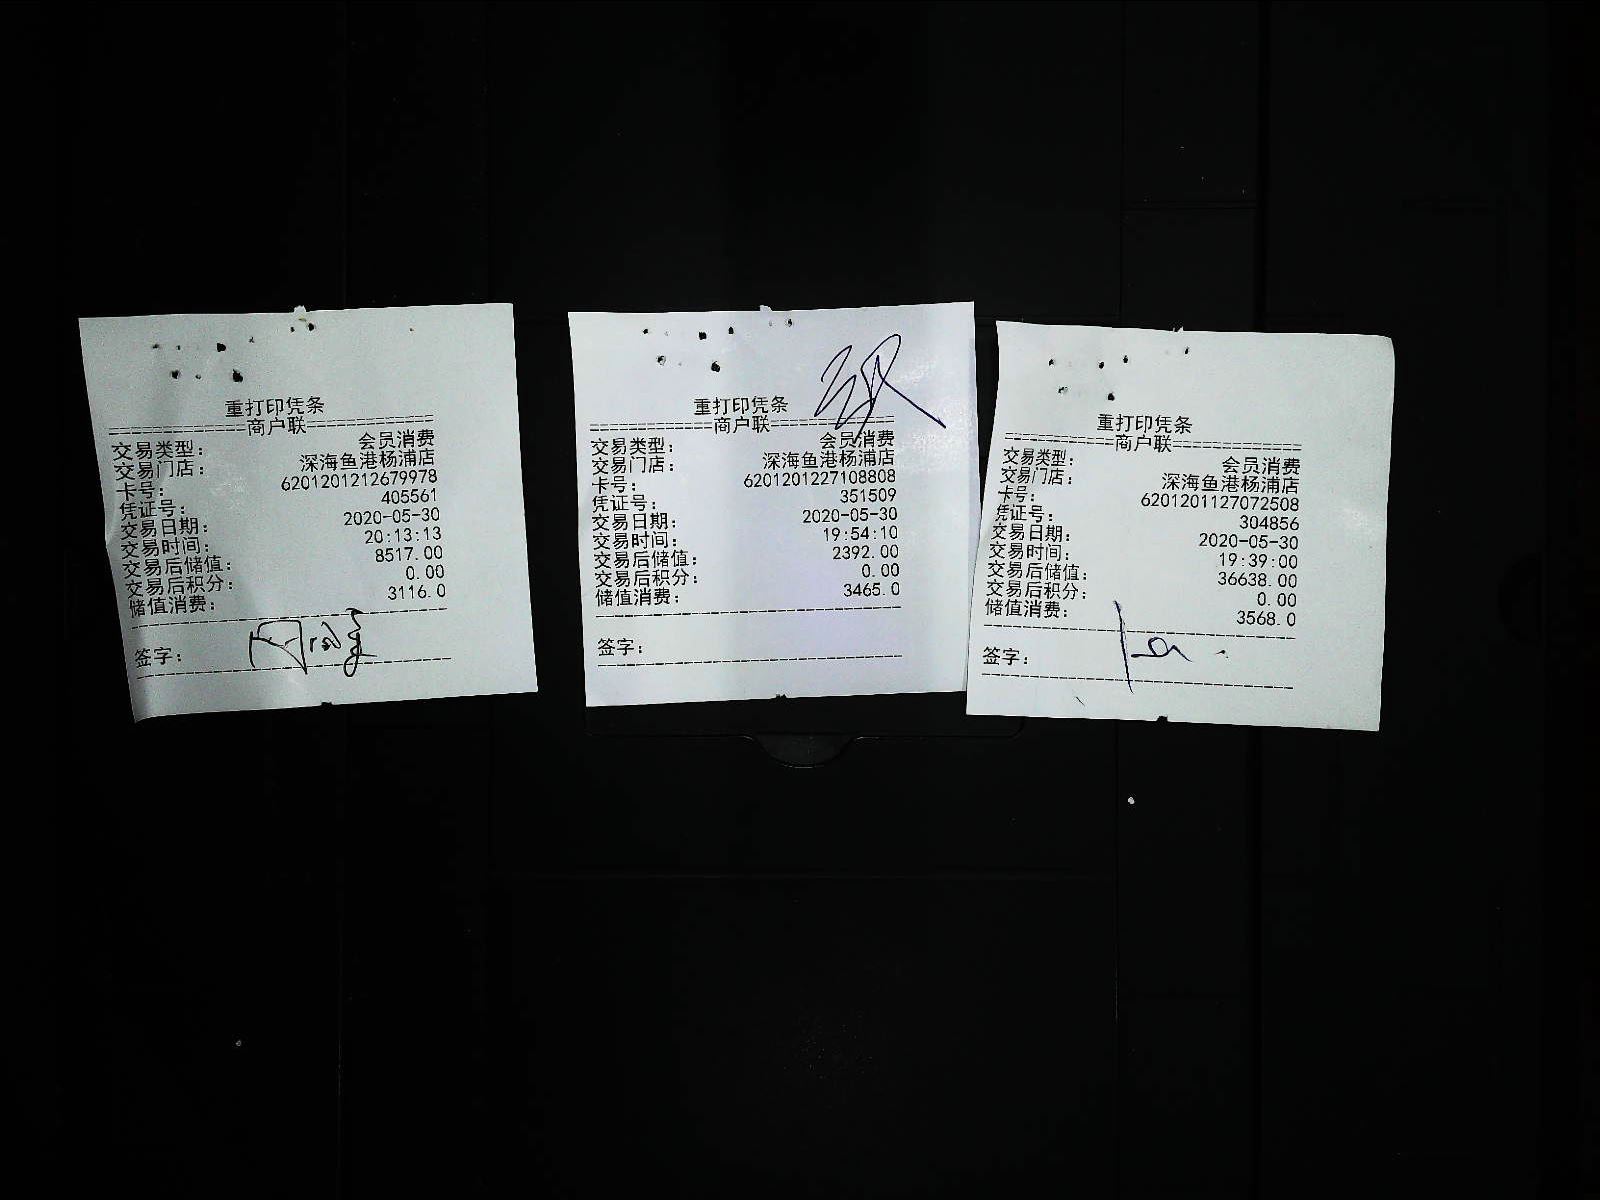 重打印凭条
==============商户联==============
交易类型： 会员消费
交易门店： 深海鱼港杨浦店
卡号： 6201201212679978
凭证号： 405561
交易日期： 2020-05-30
交易时间： 20:13:13
交易后储值： 8517.00
交易后积分： 0.00
储值消费： 3116.0
签字：
重打印凭条
==============商户联==============
交易类型： 会员消费
交易门店： 深海鱼港杨浦店
卡号： 6201201227108808
凭证号： 351509
交易日期： 2020-05-30
交易时间： 19:54:10
交易后储值： 2392.00
交易后积分： 0.00
储值消费： 3465.0
签字：
重打印凭条
==============商户联==============
交易类型： 会员消费
交易门店： 深海鱼港杨浦店
卡号： 6201201127072508
凭证号： 304856
交易日期： 2020-05-30
交易时间： 19:39:00
交易后储值： 36638.00
交易后积分： 0.00
储值消费： 3568.0
签字：